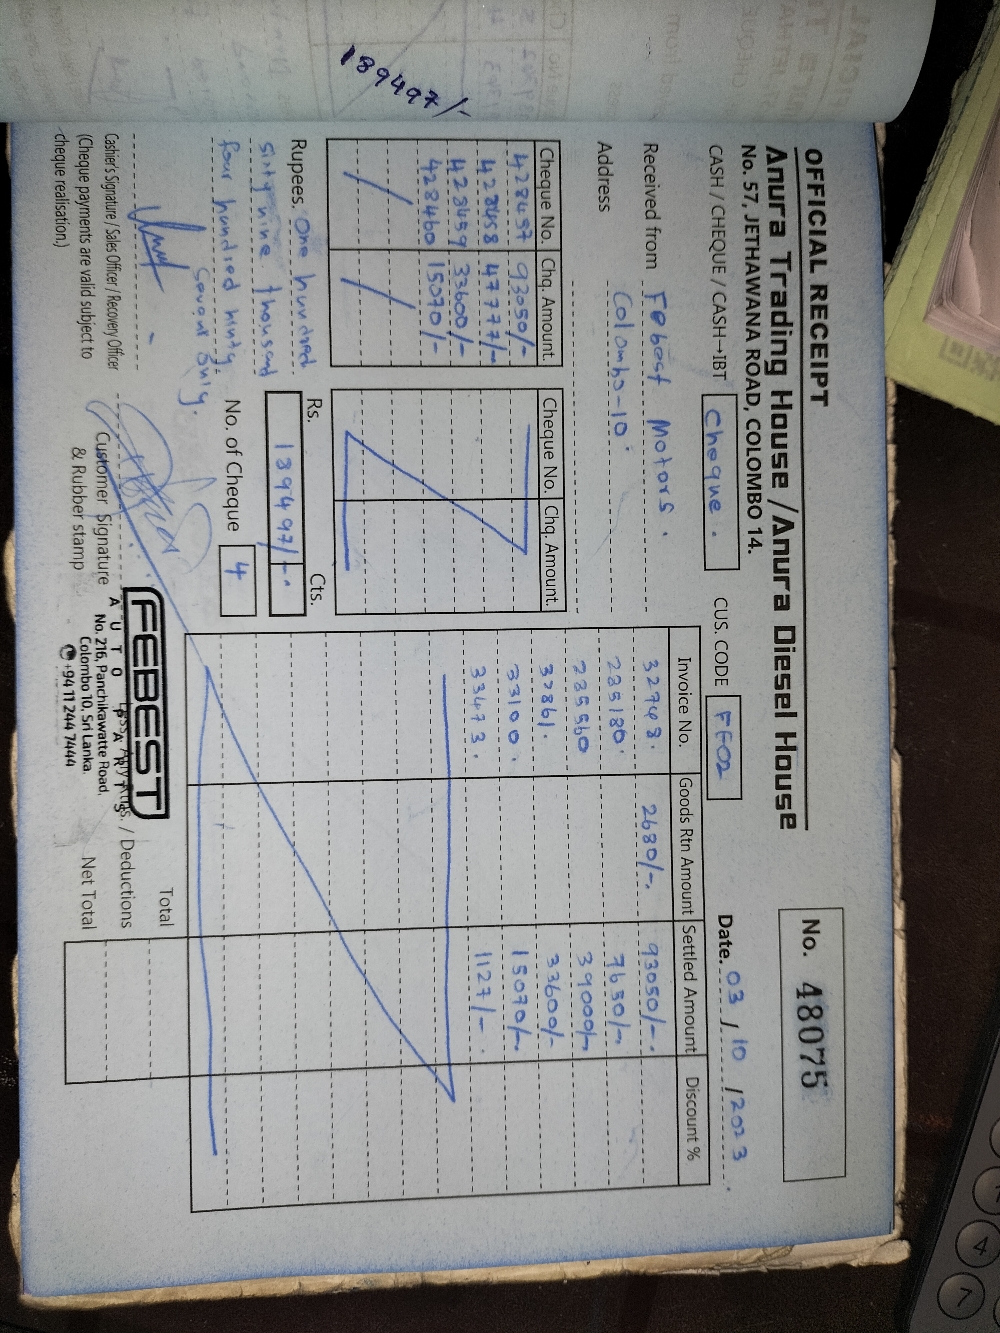 OFFICIAL RECEIPT
Anura Trading House / Anura Diesel House
No. 57, JETHAWANA ROAD, COLOMBO 14.
No. 48075
CASH / CHEQUE / CASH→IBT Cheque.
CUS. CODE FE02
Date. 03 / 10 / 2023
Received from Febest Motors.
Address Colombo-10.
Cheque No. Chq. Amount.
428457 93050/-
428458 47777/-
428459 33600/-
428460 15070/-
Cheque No. Chq. Amount.
Invoice No. Goods Rtn Amount Settled Amount Discount %
32748. 2680/-. 93050/-.
285180. 7650/-.
285560 39000/-
32861. 33600/-
33100. 15070/-.
33473. 1127/-.
Rupees. One hundred
sixty nine thousand
four hundred ninty
seven only.
Rs. Cts.
189497/-
No. of Cheque 4
Total
Less: Any Rtns. / Deductions
Net Total
Cashier's Signature / Sales Officer / Recovery Officer
(Cheque payments are valid subject to
cheque realisation.)
Customer Signature
& Rubber stamp
FEBEST
AUTO PARTS
No. 216, Panchikawatte Road,
Colombo 10, Sri Lanka.
+94 11 244 7444
189497/-
4
7